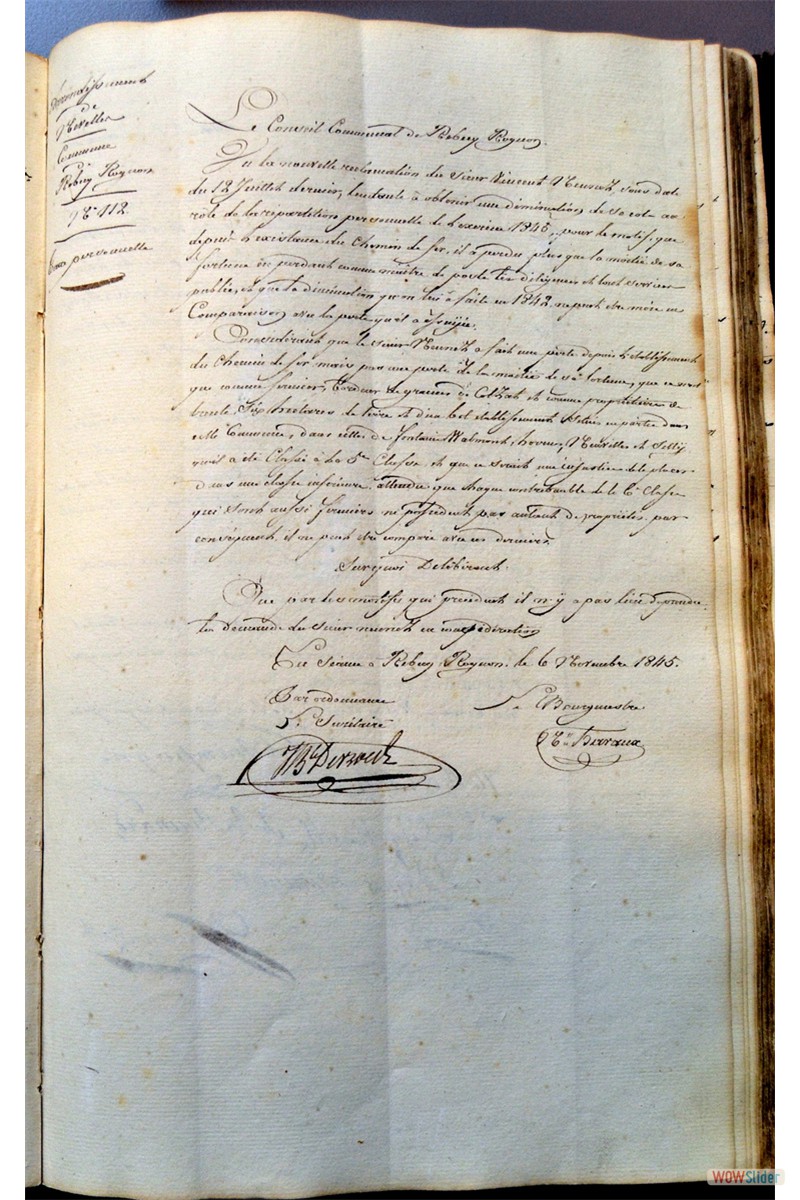 Arrondissement
de
Nivelles
Commune
de
Rebecq Rognon
N° 112
personnelle
Le Conseil Communal de Rebecq Rognon.
Vu la nouvelle reclamation du Sieur Vincent sous date
du 12 Juillet dernier, tendante à obtenir une diminution de sa cote au
rôle de la repartition personnelle de l'exercice 1845, pour le motif que
depuis l'existance du chemin de fer, il a perdu plus que la moitié de sa
fortune en perdant comme maître de poste les diligences et tout service
public, et que la diminution qu'on lui a faite en 1842 ne peut être mise en
Comparaison avec la perte qu'il a essuijée.
Considérant que le sieur a fait une perte depuis l'établissement
du chemin de fer mais pas une perte de la moitié de sa fortune, que ce n'est
que comme fermier, tordeur de graines de Colzat et comme propriétaire de
trente Six hectares de terre et d'un bel etablissement Situés en partie dans
cette Commune, dans celles de hoves, et Silly
qu'il a été Classé à la 5me Classe et que ce serait une injustice de le placer
dans une classe inférieure, attendu que chaque contribuable de la 6e Classe
qui sont aussi fermiers ne possèdent pas autant de propriétés, par
conséquent il ne peut être comparé avec ces derniers.
Sur quoi Délibérant.
Que par les motifs qui precedent il n'y a pas lieu de prendre
la demande du sieur en consideration
En Séance à Rebecq Rognon. le 6 Novembre 1845.
Par ordonnance
Le Secrétaire
Le Bourgmestre
WOWSlider